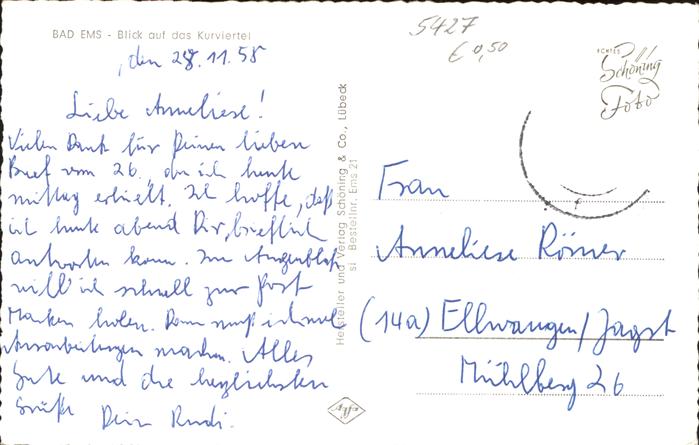 BAD EMS - Blick auf das Kurviertel
, den 28.11.58
Liebe Anneliese!
Vielen Dank für Deinen lieben
Brief vom 26., den ich heute
mittag erhielt. Ich hoffe, daß
ich heute abend Dir brieflich
antworten kann. Im Augenblick
will ich schnell zur Post
Marken holen. Dann muß ich mal
Ausarbeitungen machen. Alles
Gute und die herzlichsten
Grüße Dein Rudi.
Hersteller und Verlag Schöning & Co., Lübeck
si Bestellnr. Ems 21
5427
€ 0,50
ECHTES
Schöning
Foto
Frau
Anneliese Römer
(14a) Ellwangen/Jagst
Mühlberg 26
Agfa